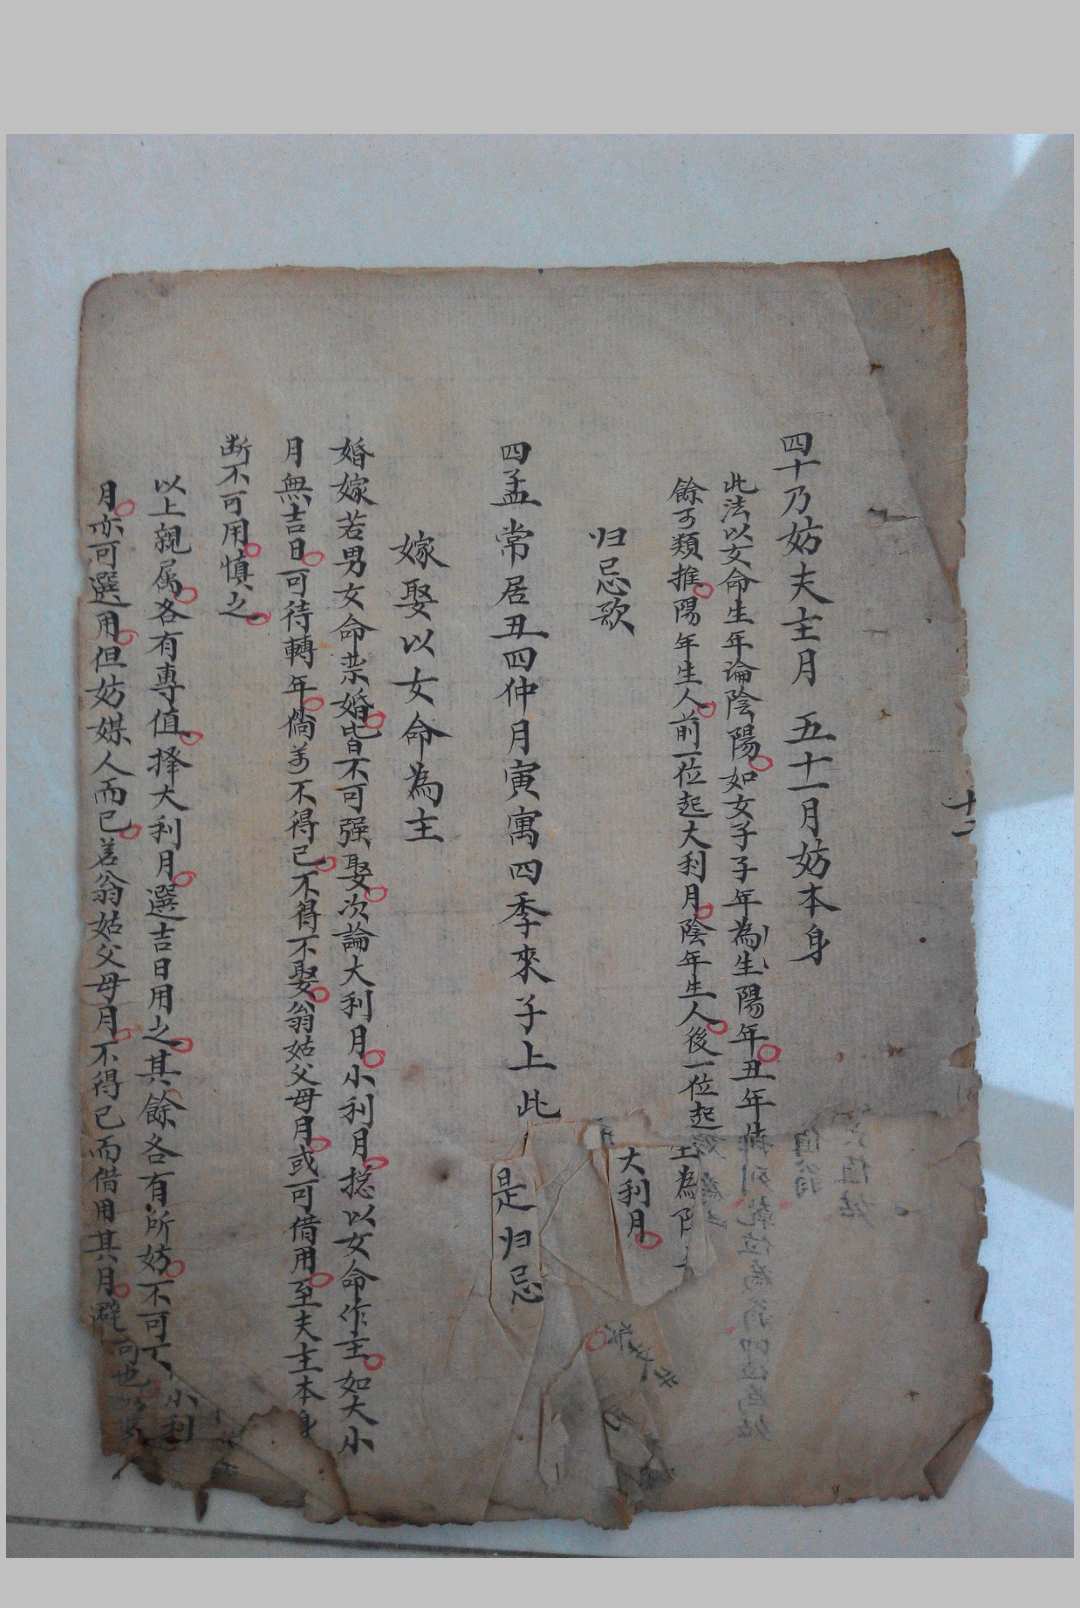 十二
四十乃妨夫主月　五十一月妨本身
此法以女命生年論陰陽如女子子年為生陽年丑年生為陰
餘可類推陽年生人前一位起大利月陰年生人後一位起大利月
归忌歌
四孟常居丑四仲月寅寓四季來子上此是归忌
嫁娶以女命為主
婚嫁若男女命禁婚皆不可强娶次論大利月小利月捴以女命作主如大小
月無吉日可待轉年倘万不得已不得不娶翁姑父母月或可借用至夫主本身
断不可用慎之
以上親属各有專值擇大利月選吉日用之其餘各有所妨不可小利
月亦可選用但妨媒人而已若翁姑父母月不得已而借用其月可也